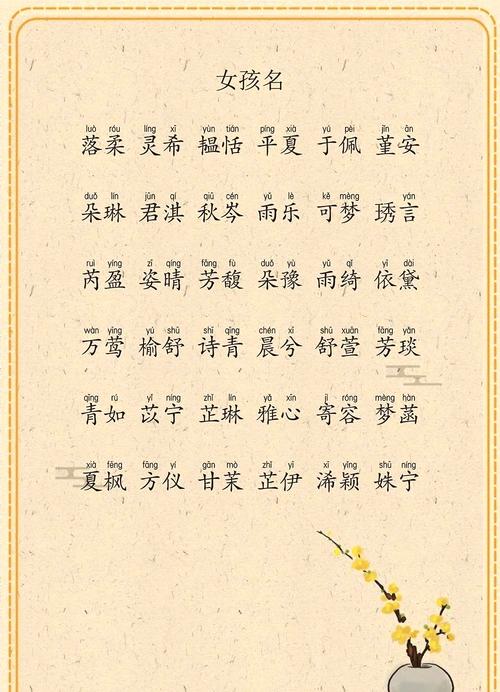 女孩名
luò róu líng xī yùn tián píng xià yú pèi jǐn ān
落柔 灵希 韫恬 平夏 于佩 堇安
duǒ lín jūn qí qiū cén yǔ lè kě mèng yán
朵琳 君淇 秋岑 雨乐 可梦 琇言
ruì yíng zī qíng fāng fù duǒ yù yǔ qǐ yī dài
芮盈 姿晴 芳馥 朵豫 雨绮 依黛
wàn yīng yú shū shī qīng chén xī shū xuān fāng yǎn
万莺 榆舒 诗青 晨兮 舒萱 芳琰
qīng rú yǐ níng zhǐ lín yǎ xīn jì róng mèng hàn
青如 苡宁 芷琳 雅心 寄容 梦菡
xià fēng fāng yí gān mò zhǐ yī xī yǐng shū níng
夏枫 方仪 甘茉 芷伊 浠颖 姝宁